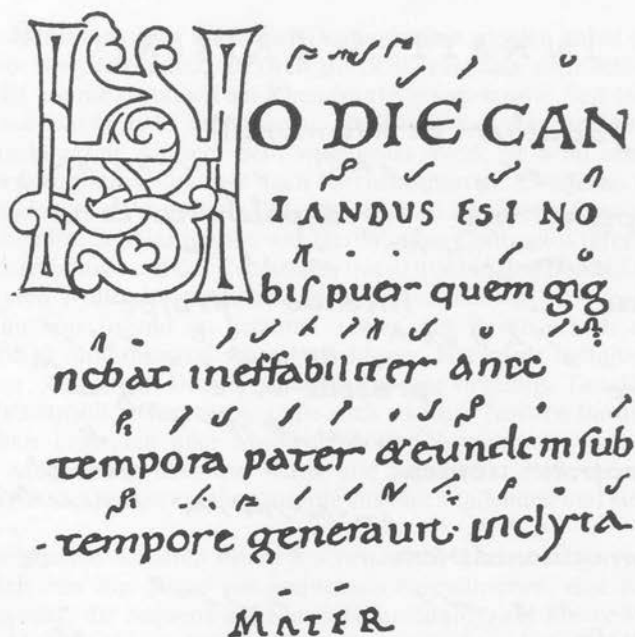 HODIE CAN
TANDUS EST NO
bis puer quem gig
nebat ineffabiliter ante
tempora pater & eundem sub
tempore generauit· inclyta
MATER